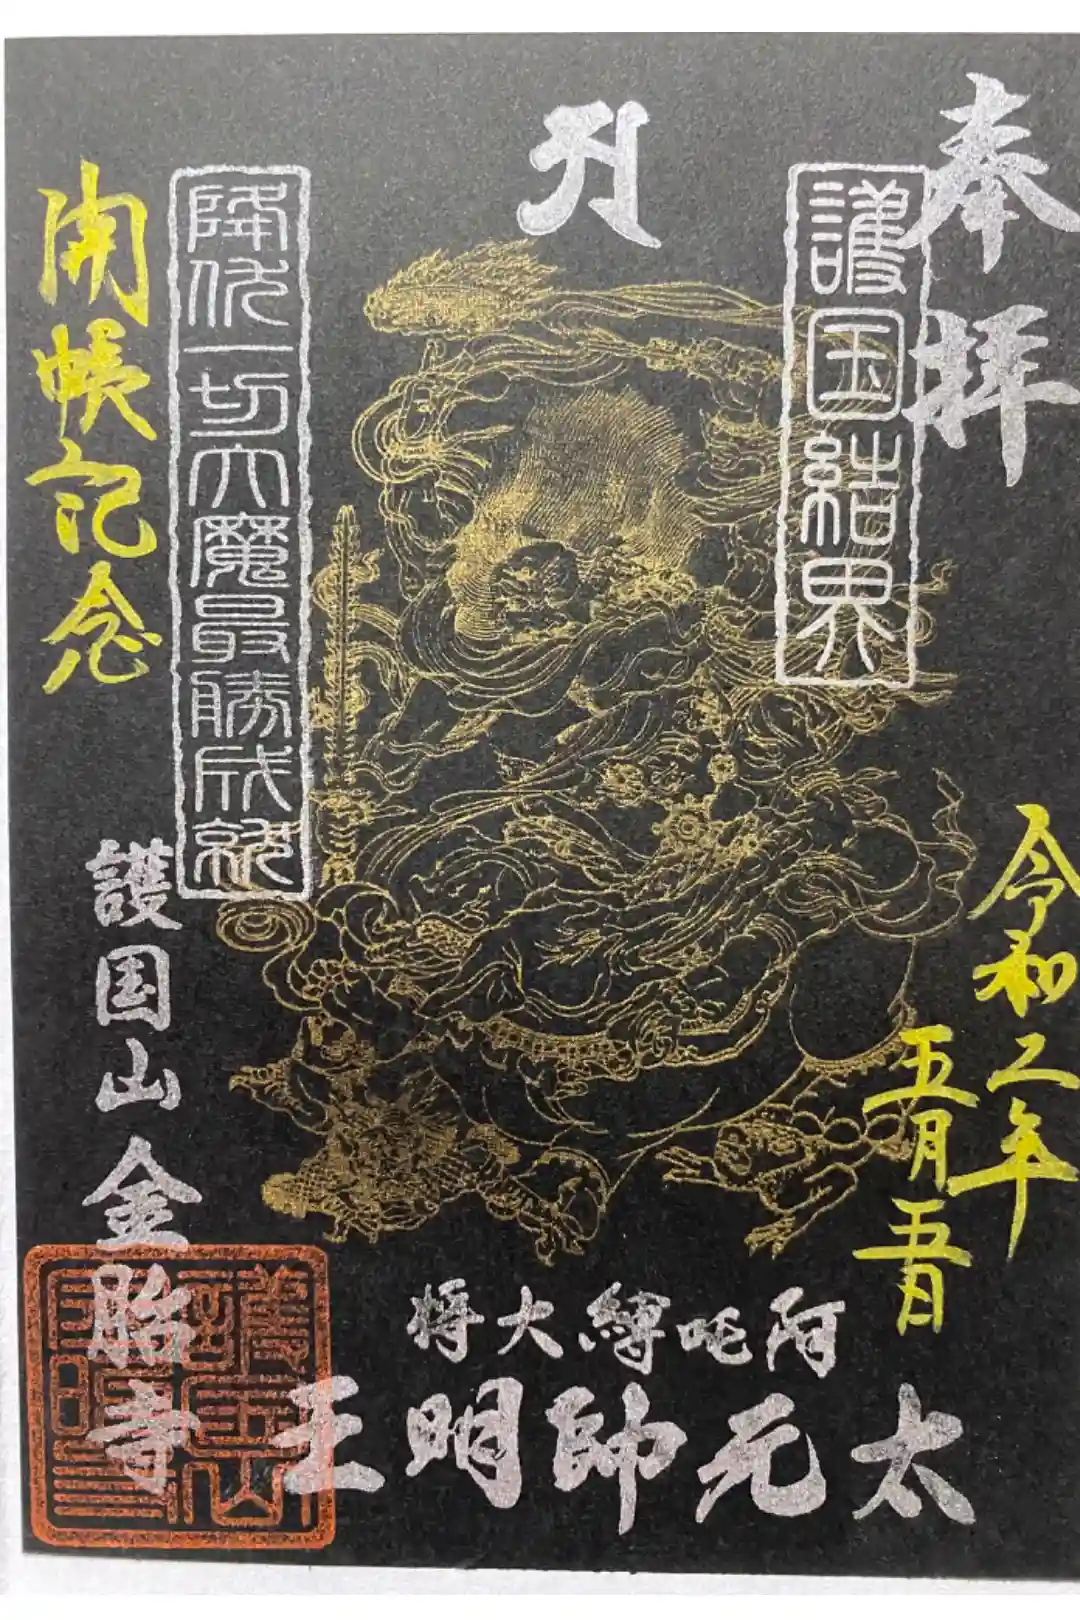 奉拝
護国結界
令和二年
五月五日
開帳記念
降伏一切大魔最勝成就
阿吒縛大将
太元帥明王
護国山金胎寺